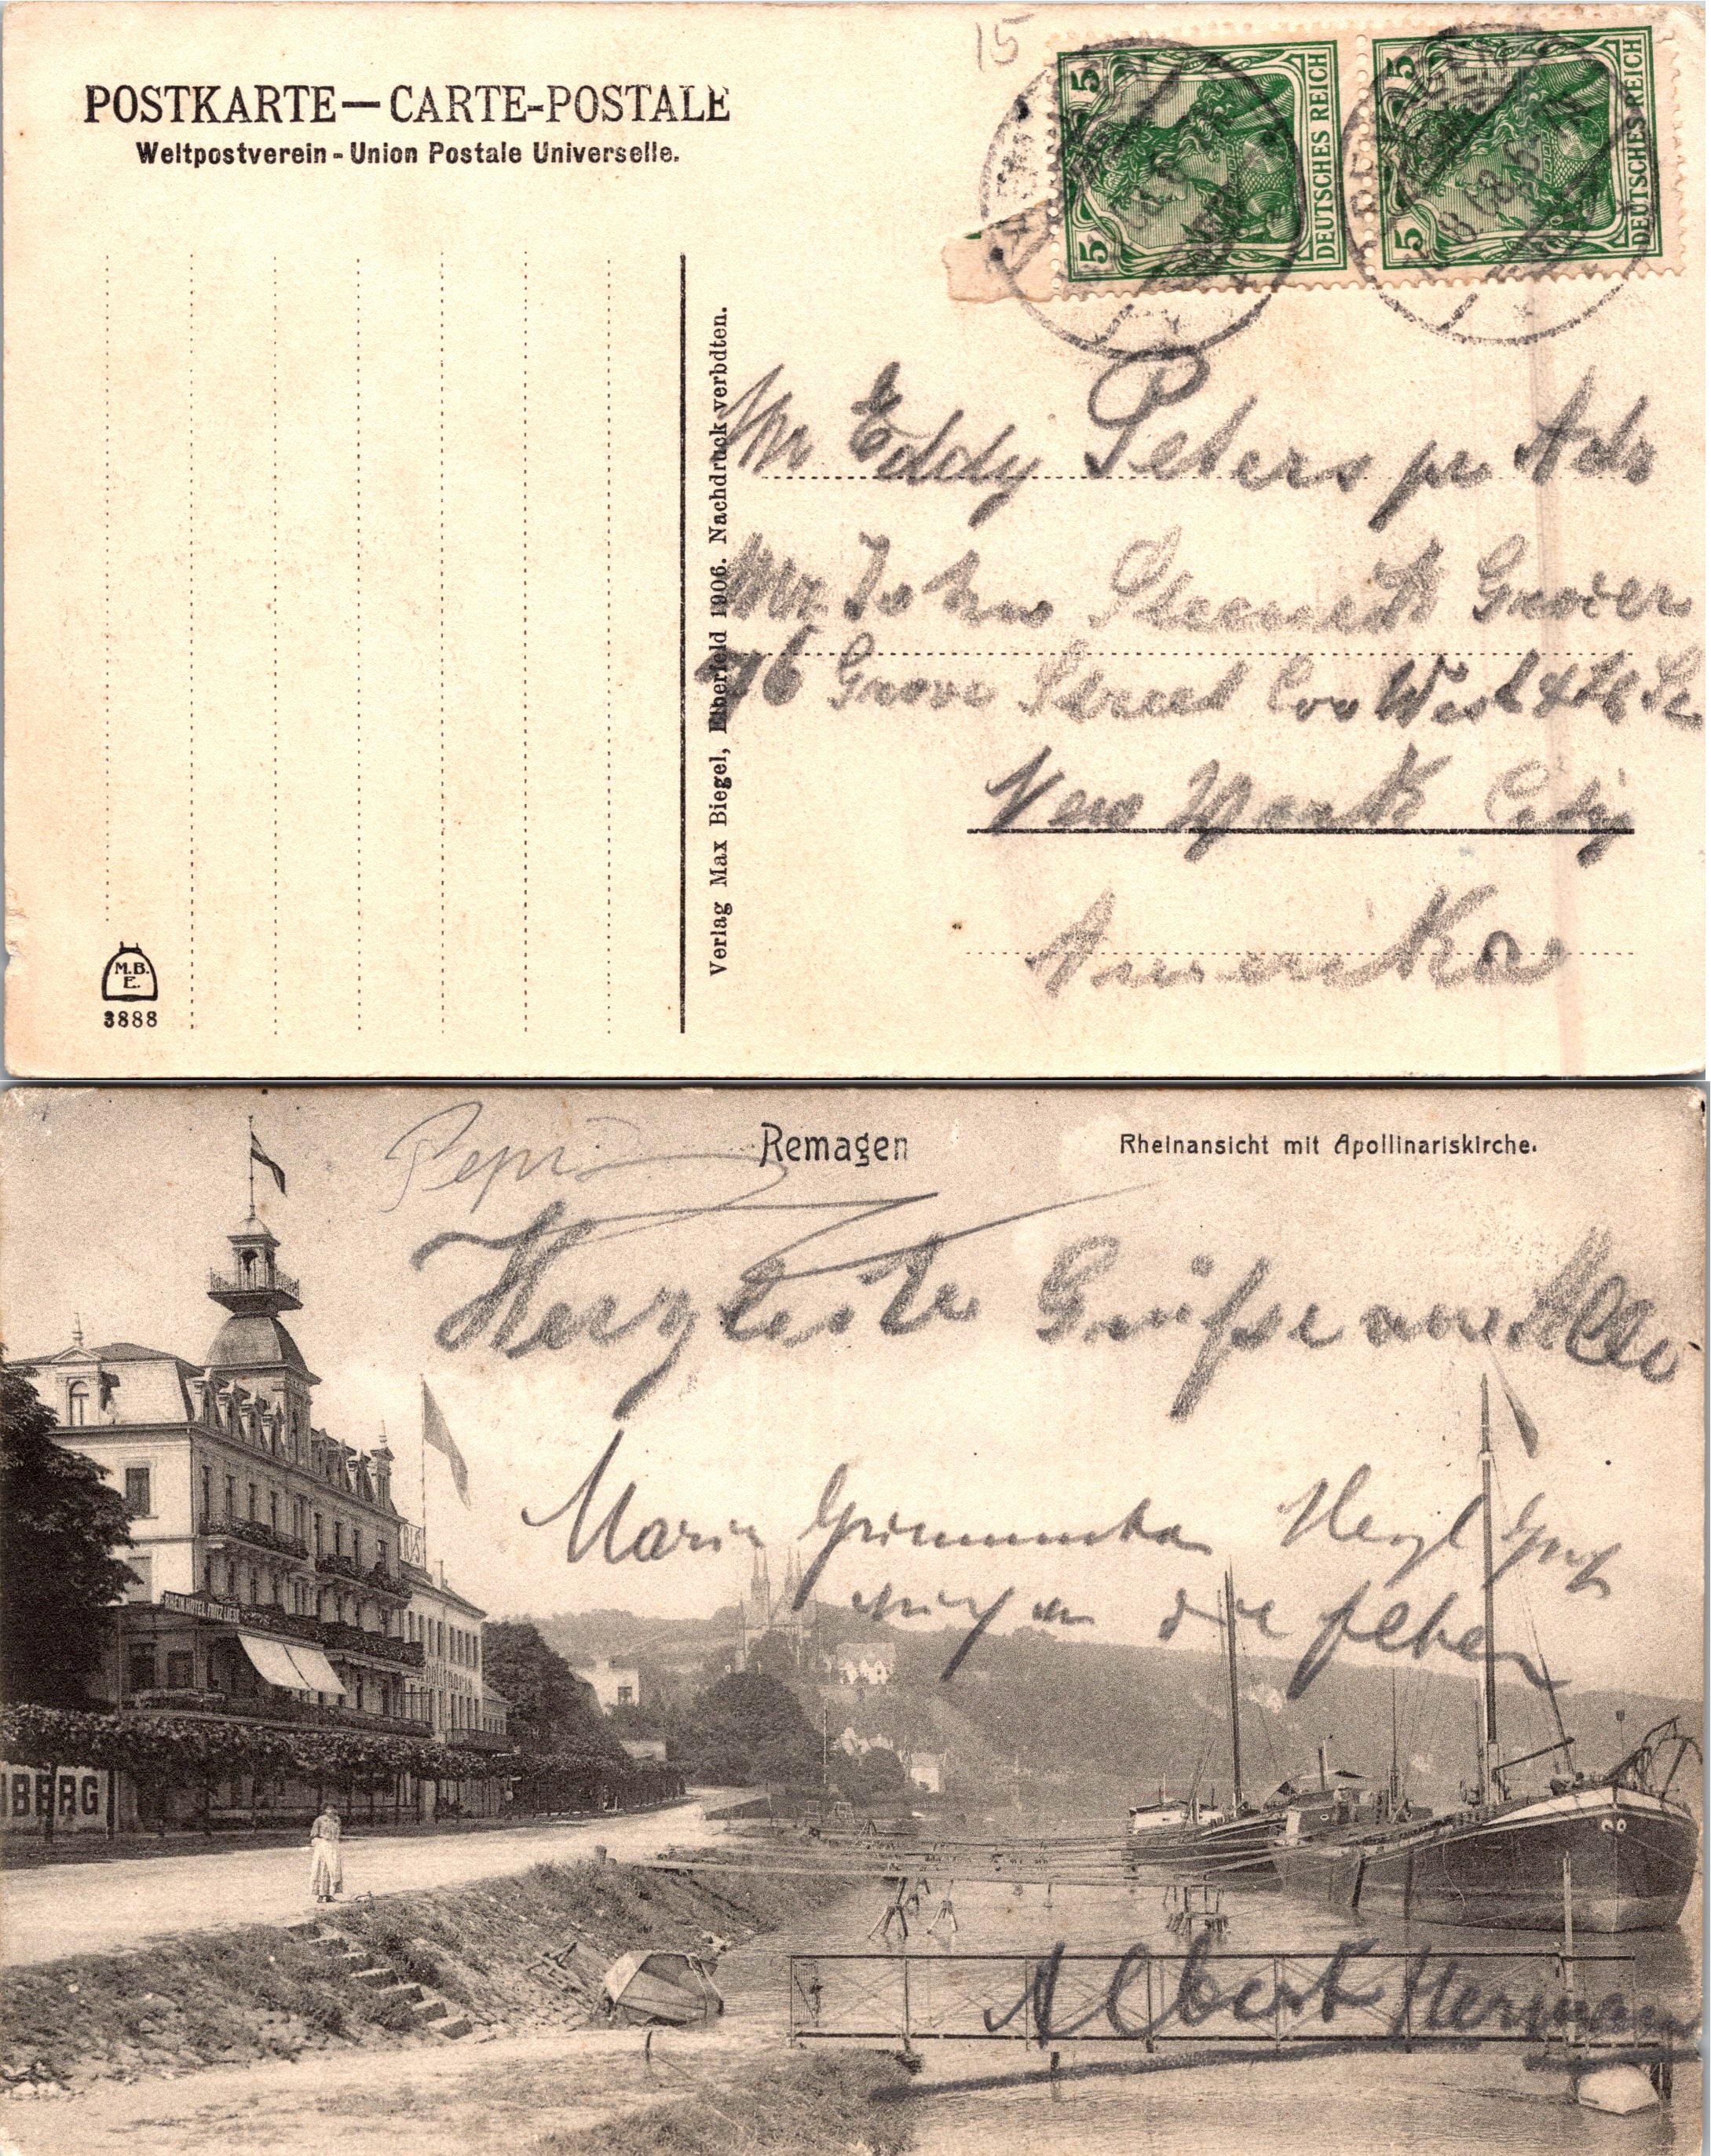 15
POSTKARTE — CARTE-POSTALE
Weltpostverein - Union Postale Universelle.
5 5 DEUTSCHES REICH
5 5 DEUTSCHES REICH
Verlag Max Biegel, Elberfeld 1906. Nachdruck verboten.
Mr Eddy Peters pr Adr
Mr. John Grocer
96 Grove Street Cor West 4th St
New York City
Amerika
M.B.
E.
3888
Remagen
Rheinansicht mit Apollinariskirche.
Pepi
Herzleiste Grüsse an Alle
Maria Herzl Gruß
die
RHEIN HOTEL FRITZ
BERG
Albert Herman